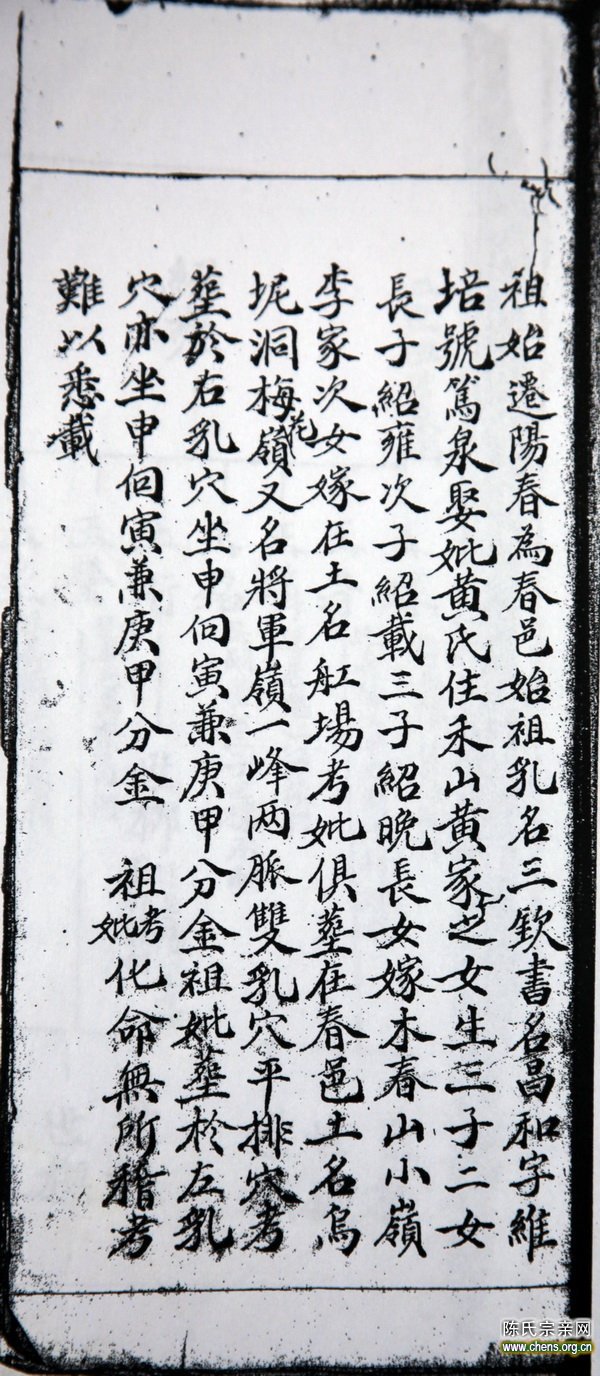 祖始遷陽春為春邑始祖乳名三欽書名昌和字維
培號篤泉娶妣黄氏住禾山黄家之女生三子二女
長子紹雍次子紹載三子紹晚長女嫁木春山小嶺
李家次女嫁在土名舡場考妣俱塟在春邑土名烏
坭洞梅花嶺又名將軍嶺一峰两脈雙乳穴平排穴考
塟於右乳穴坐申向寅兼庚甲分金祖妣塟於左乳
穴亦坐申向寅兼庚甲分金 祖考妣化命無所稽考
難以悉載
陈氏宗亲网
www.chens.org.cn